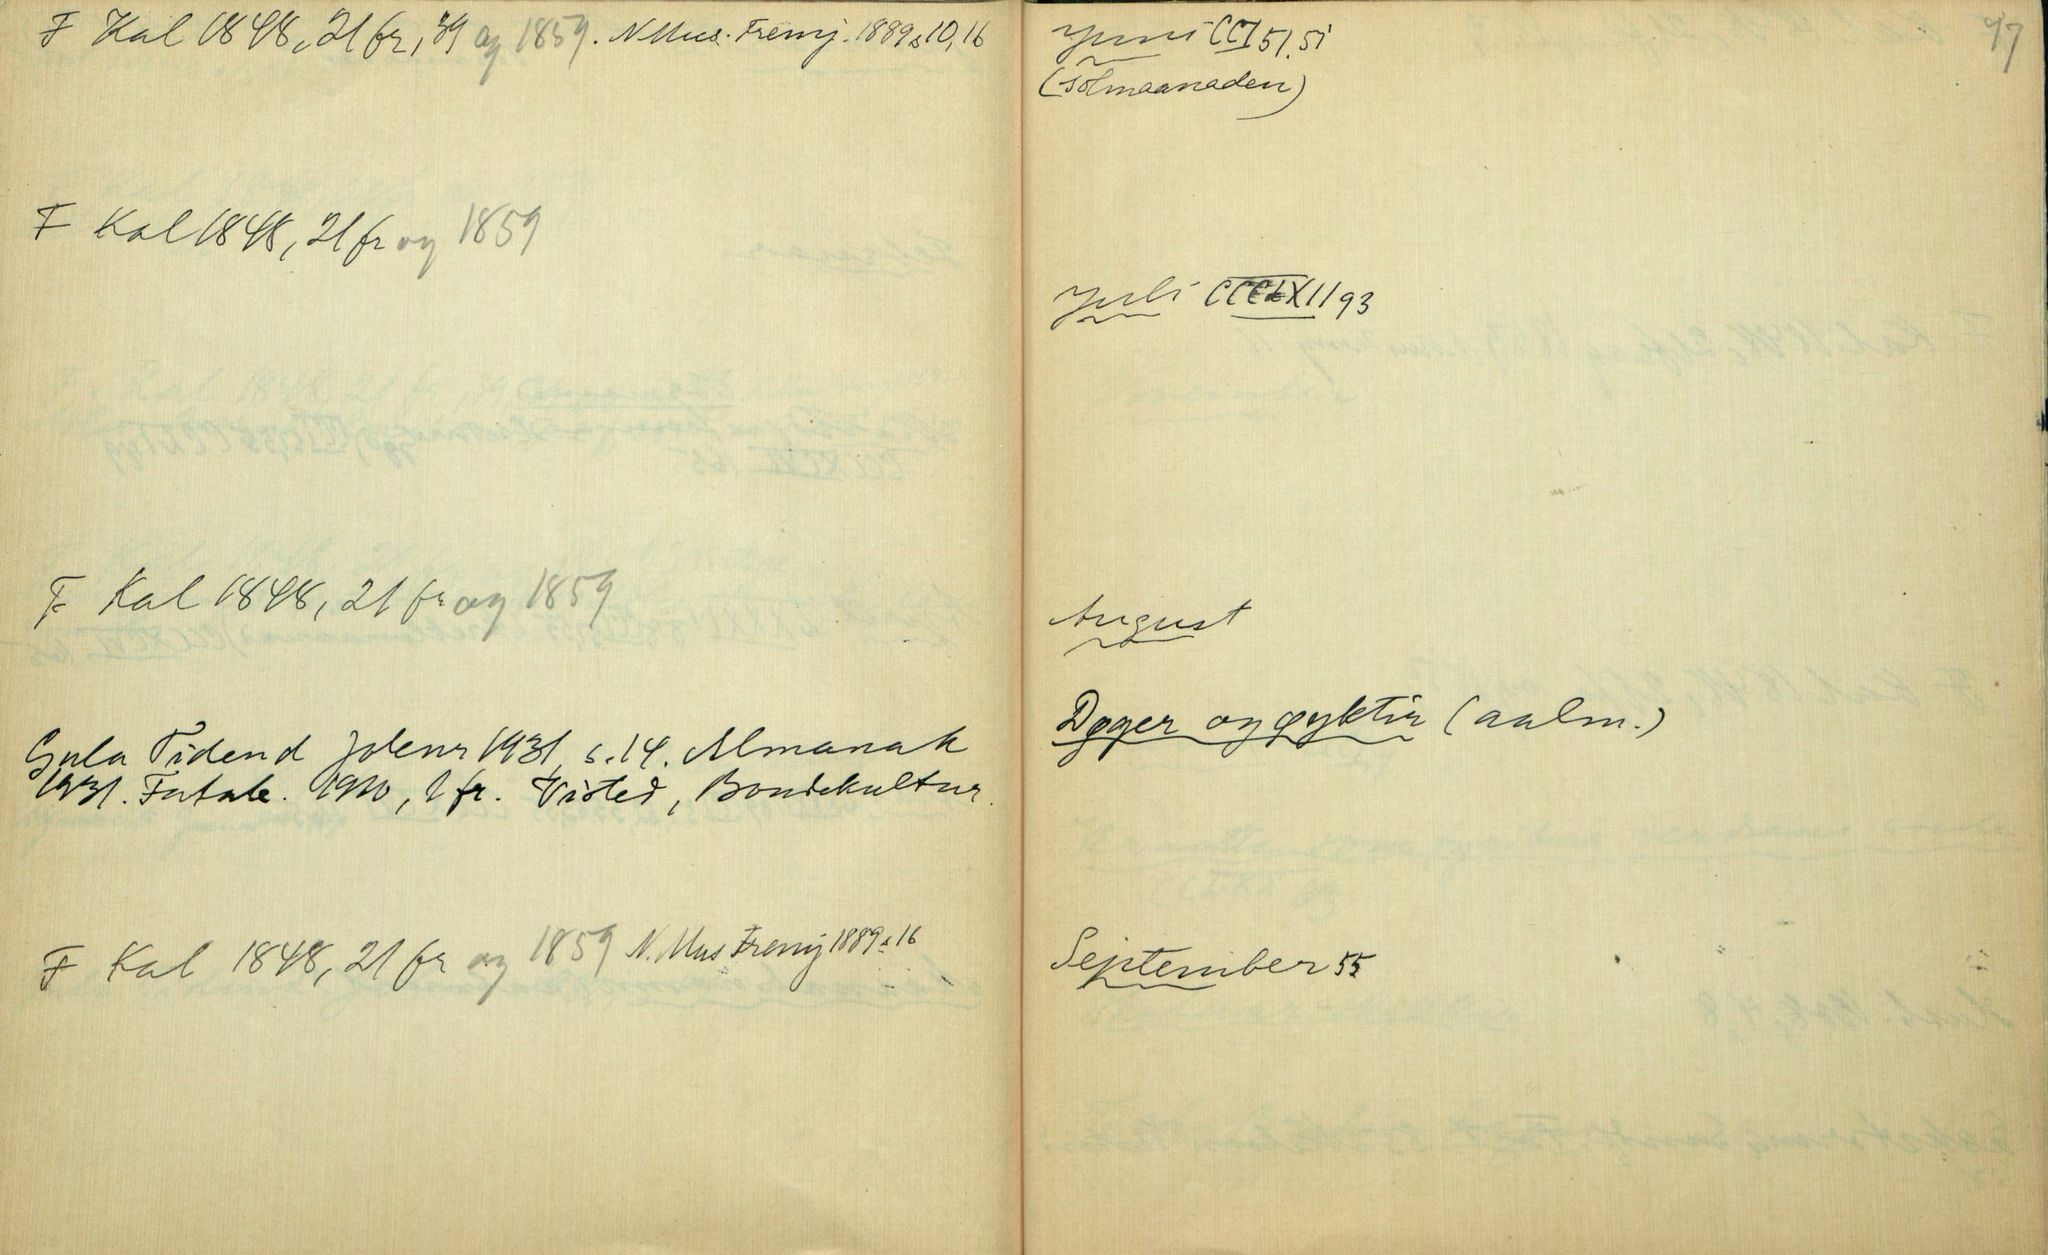 F Kal 1848, 21 fr, 39 og 1859. N Mus. Fremj. 1889 s 10, 16
F Kal 1848, 21 fr og 1859
F Kal 1848, 21 fr og 1859
Gula Tidend Jolenr 1931, s. 14. Almanak
1931. Fortale. 1910, 1 fr. Visted, Bondekultur.
F Kal 1848, 21 fr og 1859 N. Mus Fremj 1889 s 16
47
Juni CCI 51. 51
(solmaanaden)
Juli 93
August
Døger og øyktir (aalm.)
September 55